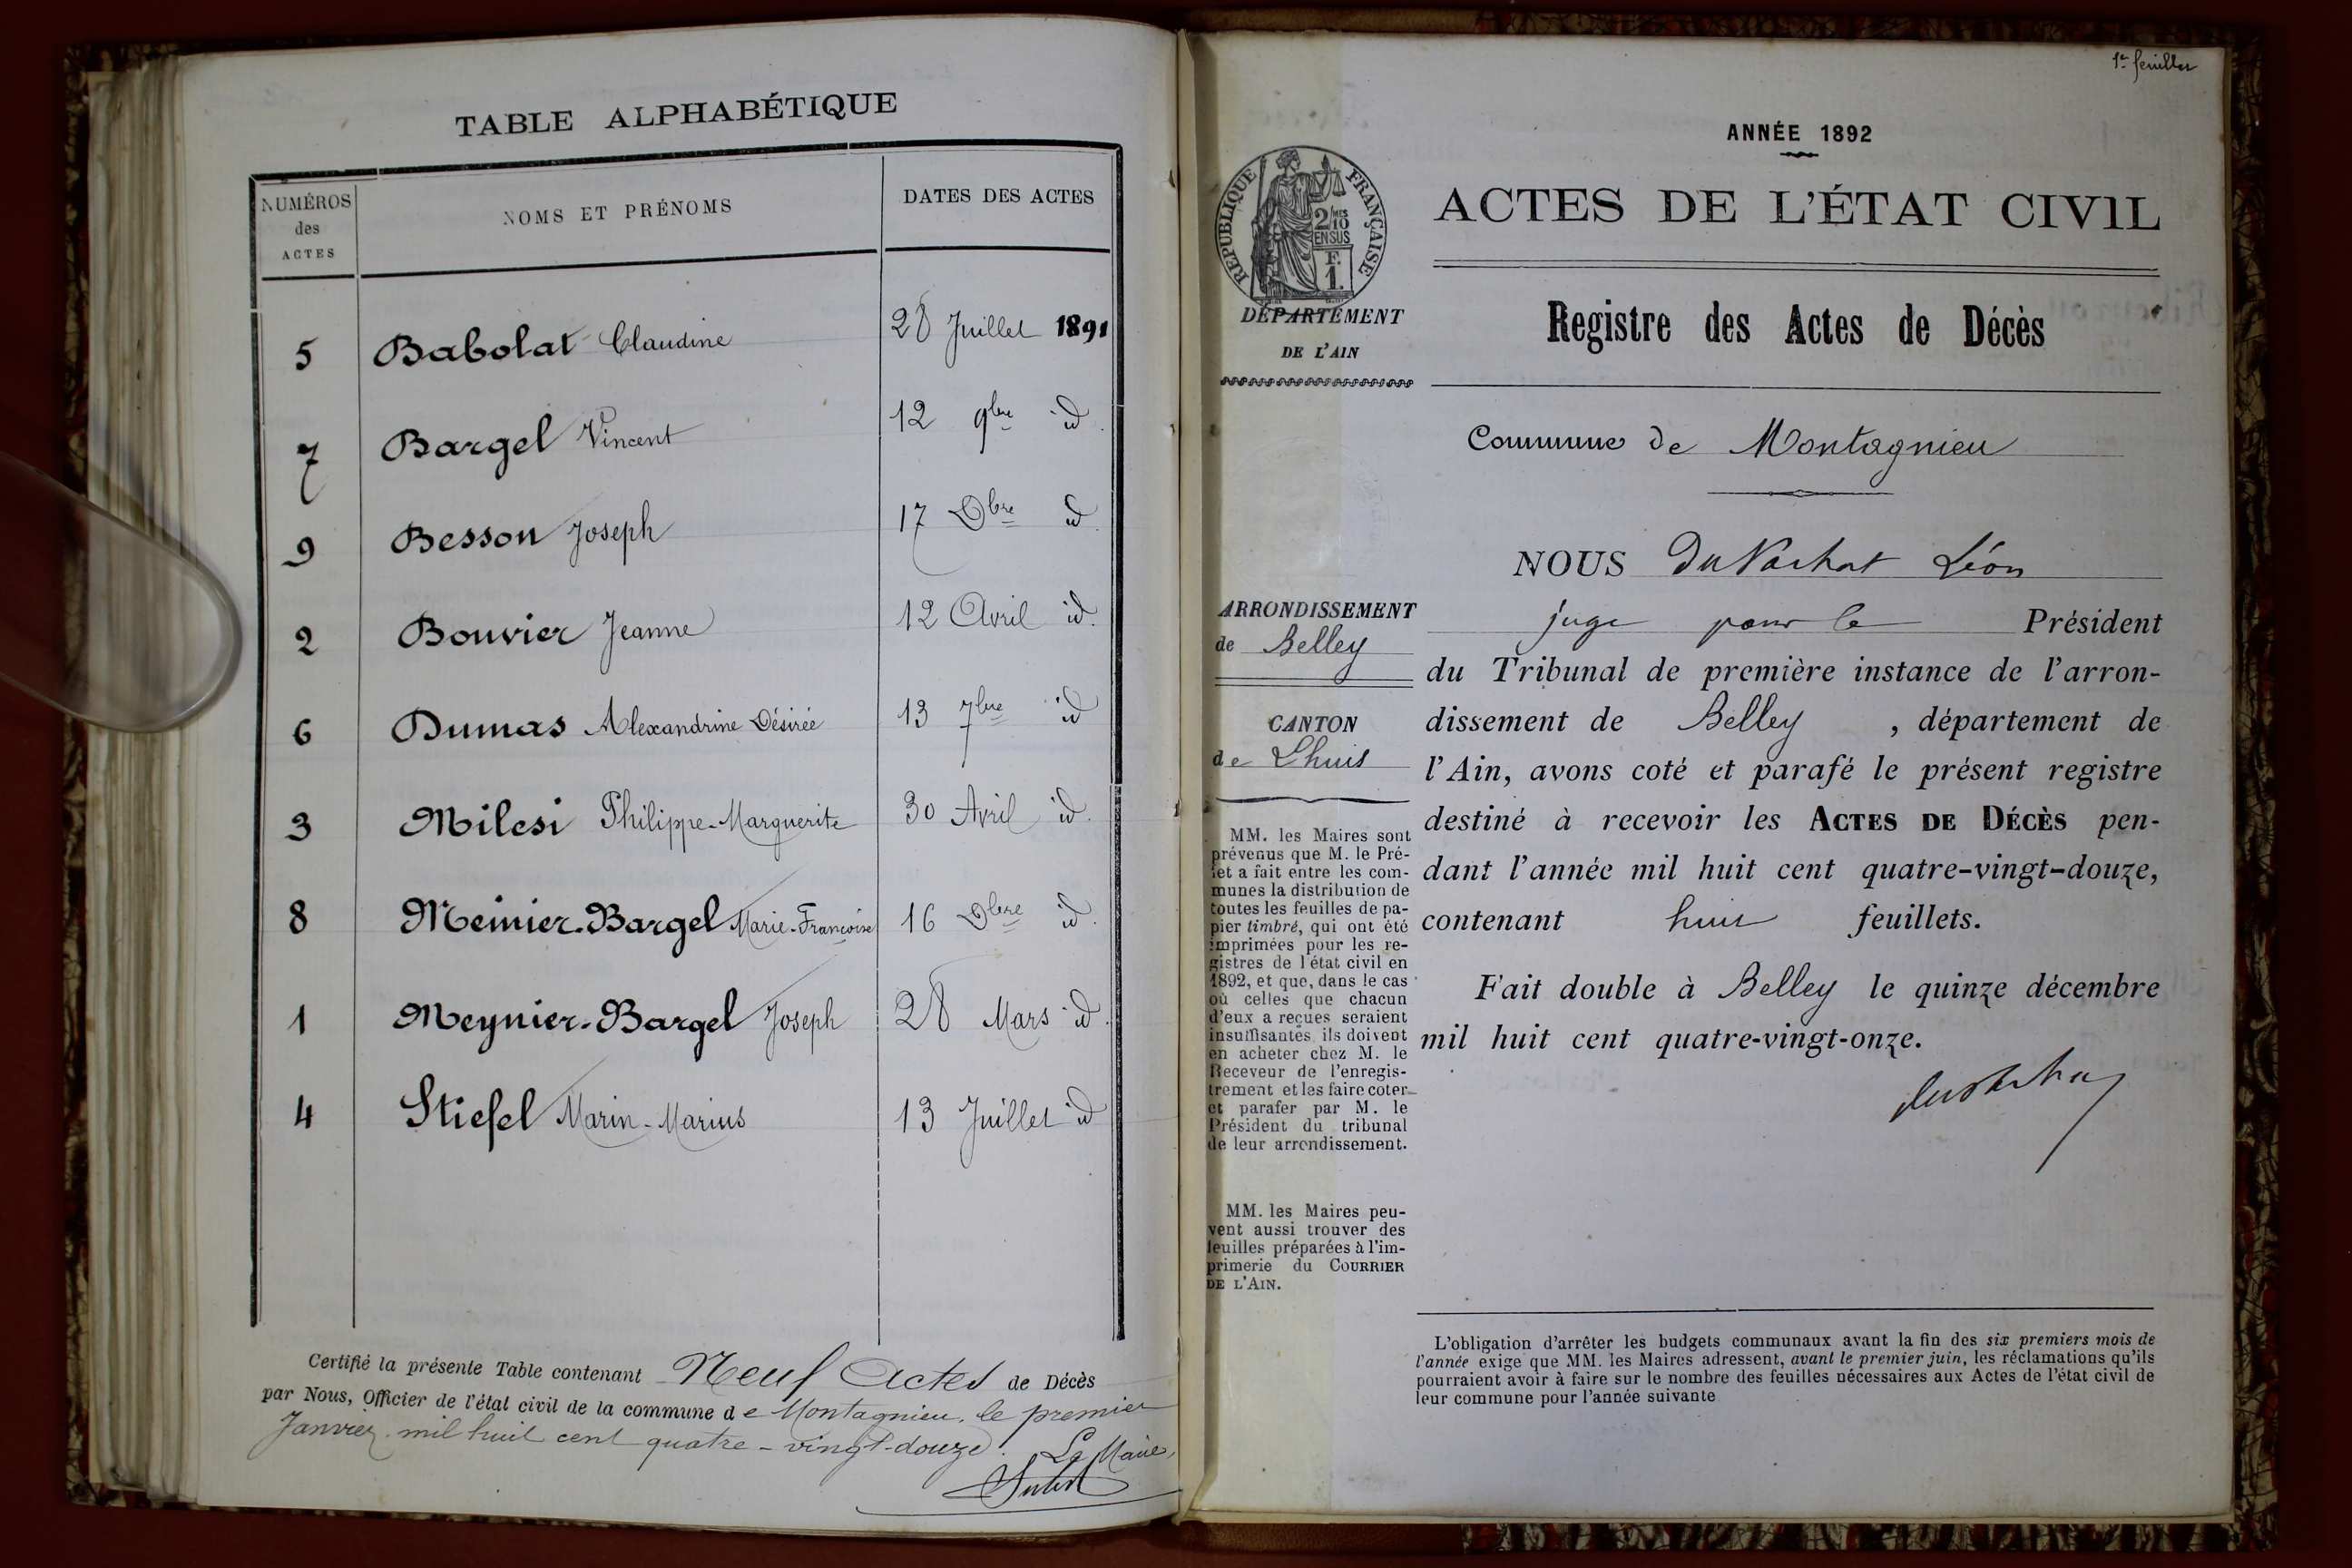 TABLE ALPHABÉTIQUE
NUMÉROS des ACTES
NOMS ET PRÉNOMS
DATES DES ACTES
5 Babolat Claudine 28 Juillet 1891
7 Bargel Vincent 12 9bre id.
9 Besson Joseph 17 Dbre id.
2 Bouvier Jeanne 12 Avril id.
6 Dumas Alexandrine Désirée 13 7bre id
3 Milesi Philippe-Marguerite 30 Avril id.
8 Meinier-Bargel Marie-Françoise 16 Dbre id.
1 Meynier-Bargel Joseph 28 Mars id.
4 Stiefel Marin-Marius 13 Juillet id
Certifié la présente Table contenant Neuf Actes de Décès
par Nous, Officier de l'état civil de la commune de Montagnieu, le premier
Janvier mil huit cent quatre-vingt-douze. Le Maire,
1er feuillet
ANNÉE 1892
RÉPUBLIQUE FRANÇAISE
2/10 MES
EN SUS
F.
1.
ACTES DE L'ÉTAT CIVIL
DÉPARTEMENT
DE L'AIN
Registre des Actes de Décès
Commune de Montagnieu
ARRONDISSEMENT
de Belley
CANTON
de Lhuis
MM. les Maires sont
prévenus que M. le Pré-
fet a fait entre les com-
munes la distribution de
toutes les feuilles de pa-
pier timbré, qui ont été
imprimées pour les re-
gistres de l'état civil en
1892, et que, dans le cas
où celles que chacun
d'eux a reçues seraient
insuffisantes, ils doivent
en acheter chez M. le
Receveur de l'enregis-
trement et les faire coter
et parafer par M. le
Président du tribunal
de leur arrondissement.
MM. les Maires peu-
vent aussi trouver des
feuilles préparées à l'im-
primerie du COURRIER
DE L'AIN.
NOUS Du Vachat Léon
juge pour le Président
du Tribunal de première instance de l'arron-
dissement de Belley, département de
l'Ain, avons coté et parafé le présent registre
destiné à recevoir les ACTES DE DÉCÈS pen-
dant l'année mil huit cent quatre-vingt-douze,
contenant huit feuillets.
Fait double à Belley le quinze décembre
mil huit cent quatre-vingt-onze.
L'obligation d'arrêter les budgets communaux avant la fin des six premiers mois de
l'année exige que MM. les Maires adressent, avant le premier juin, les réclamations qu'ils
pourraient avoir à faire sur le nombre des feuilles nécessaires aux Actes de l'état civil de
leur commune pour l'année suivante